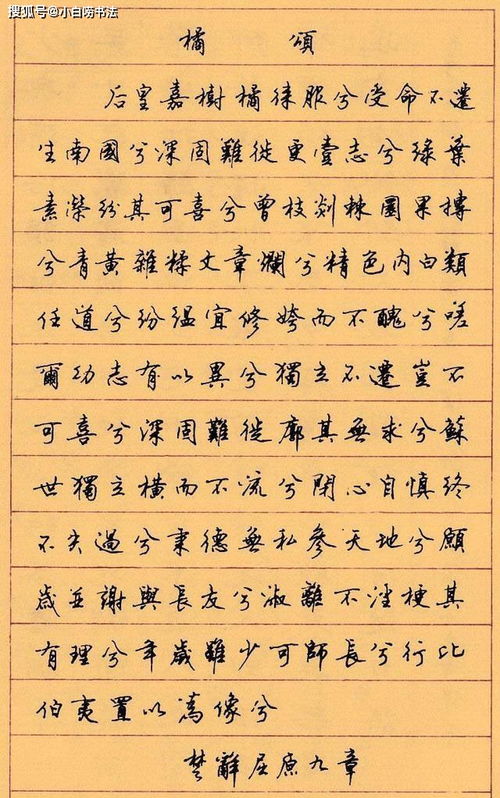 搜狐号@小白唠书法
橘頌
后皇嘉樹橘徠服兮受命不遷
生南國兮深固難徙更壹志兮綠葉
素榮紛其可喜兮曾枝剡棘圜果摶
兮青黃雜糅文章爛兮精色內白類
任道兮紛緼宜修姱而不醜兮嗟
爾幼志有以異兮獨立不遷豈不
可喜兮深固難徙廓其無求兮蘇
世獨立橫而不流兮閉心自慎終
不失過兮秉德無私參天地兮願
歲並謝與長友兮淑離不淫梗其
有理兮年歲雖少可師長兮行比
伯夷置以為像兮
楚辭屈原九章